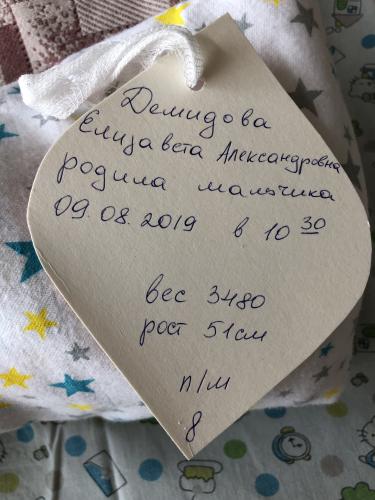 Демидова
Елизавета Александровна
родила мальчика
09.08.2019 в 10 30
вес 3480
рост 51см
п/м
8